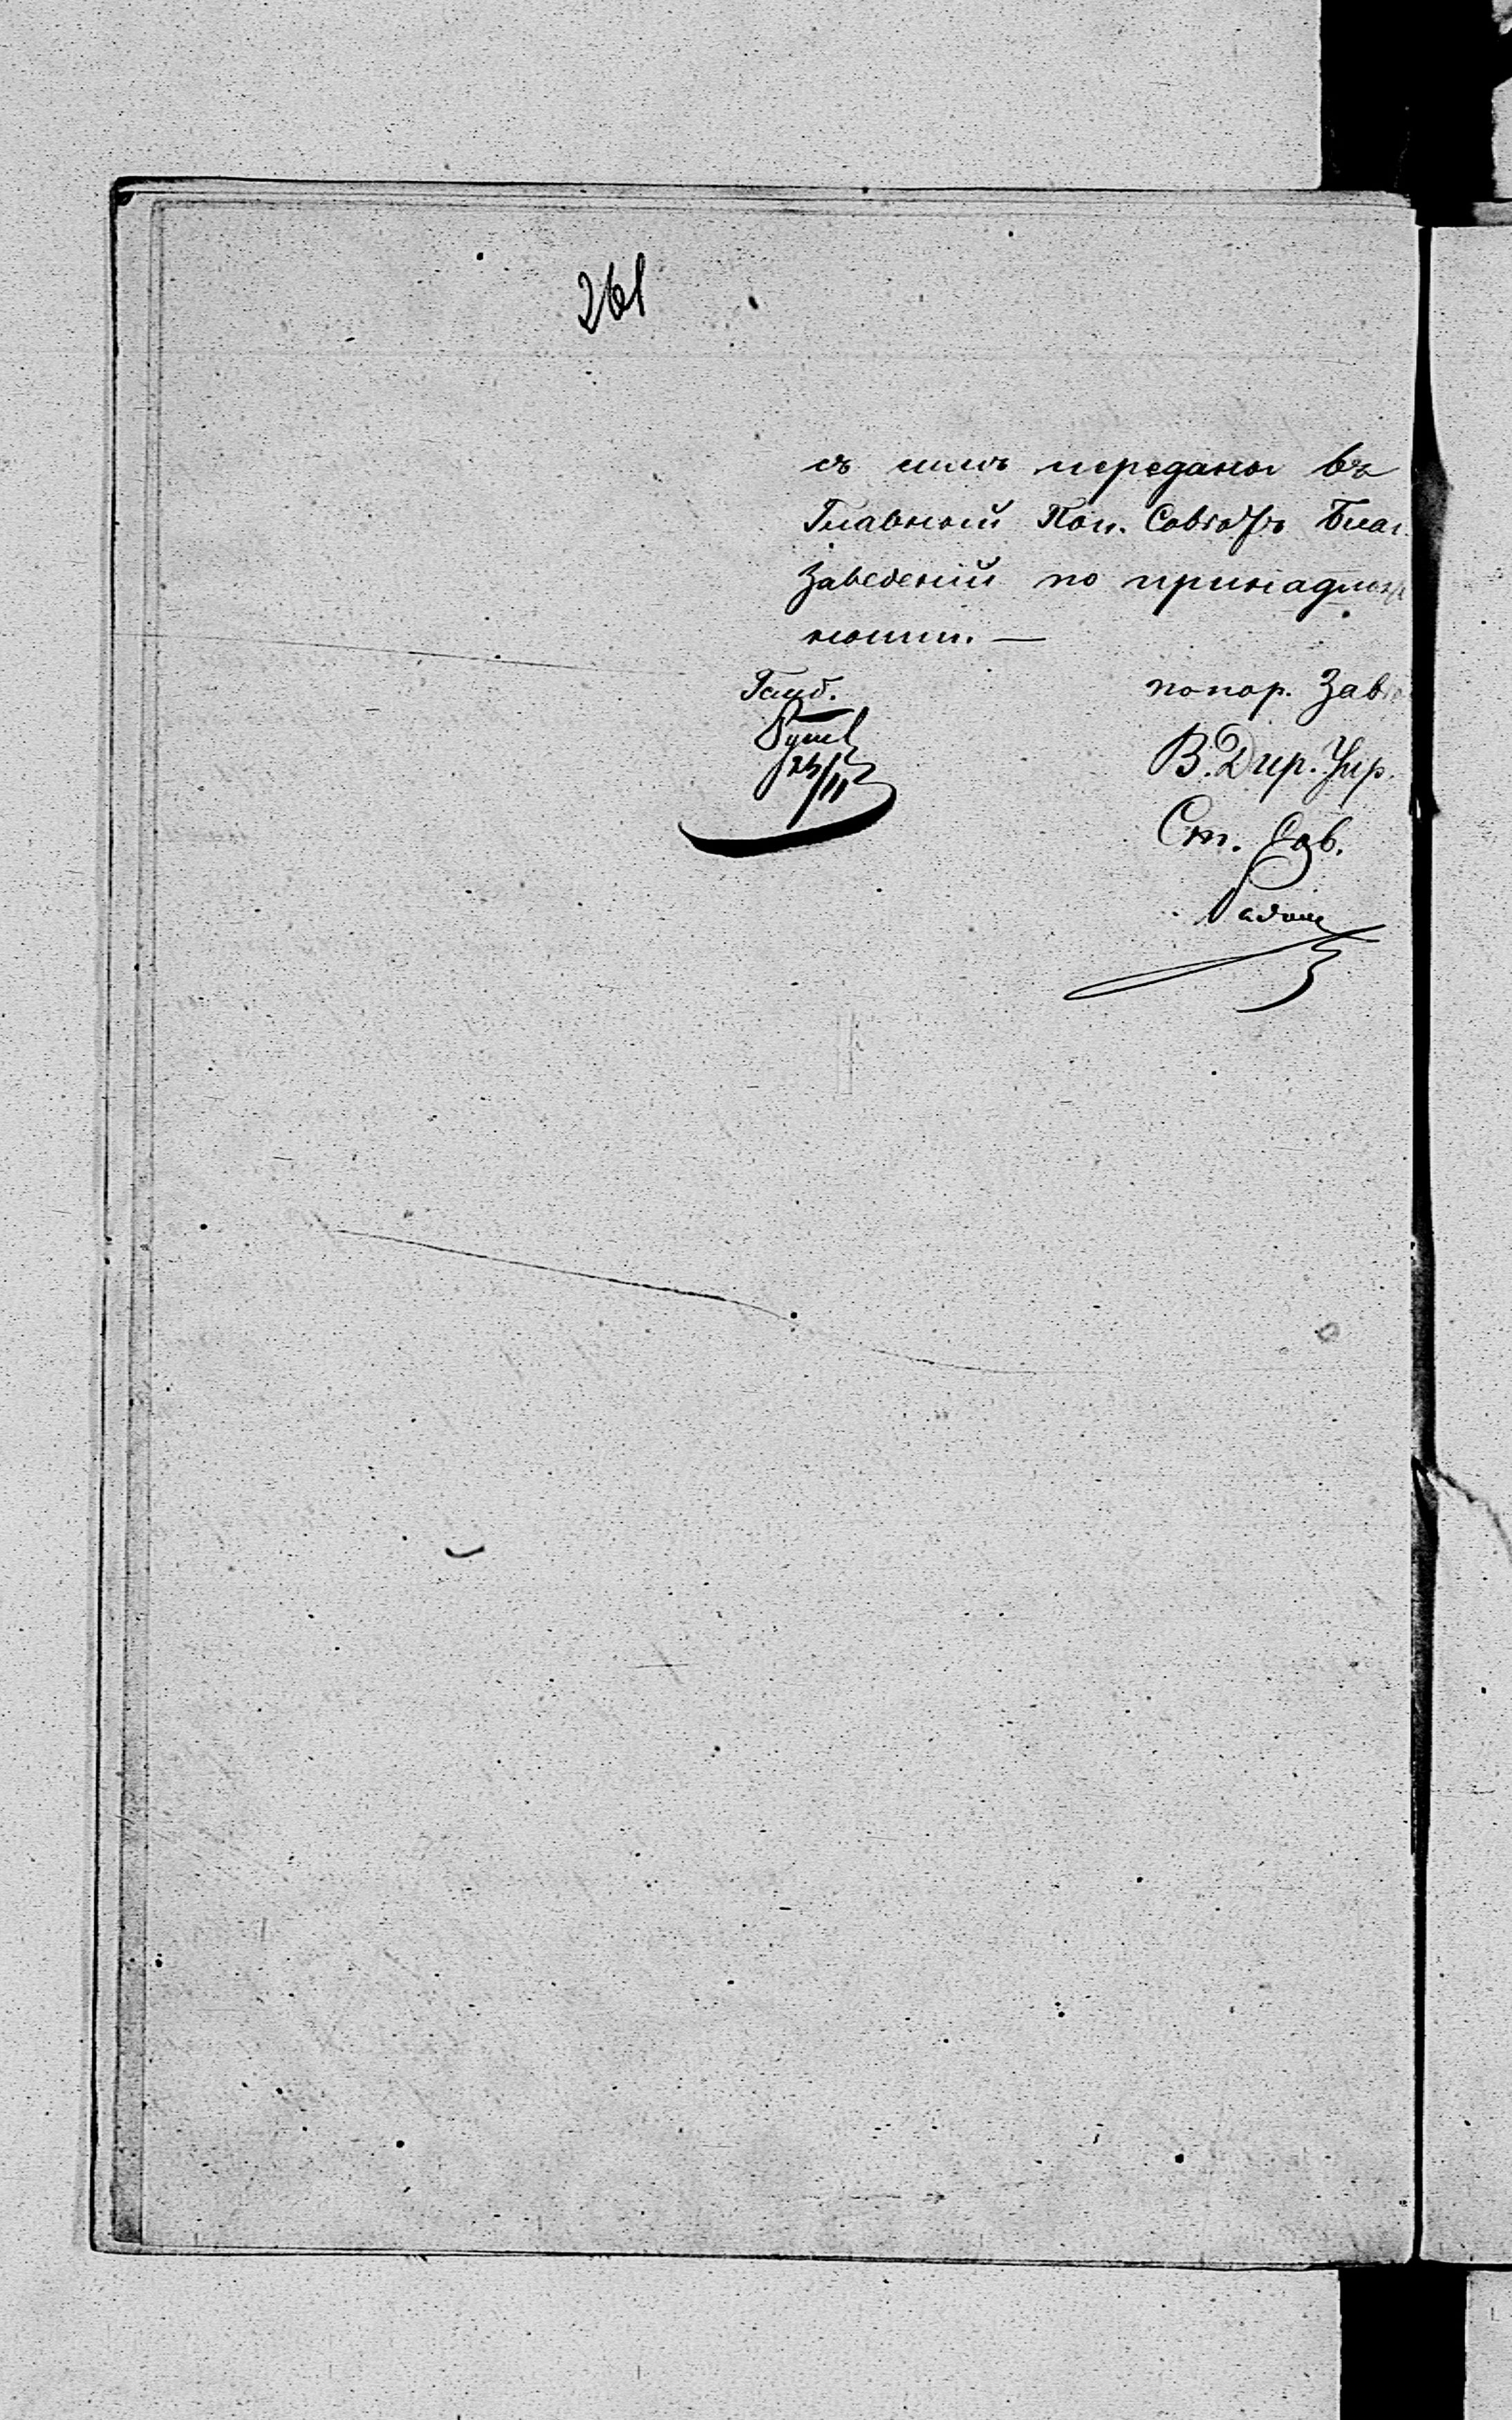 261
съ симъ переданы въ
Главный Поп. Совѣтъ Благ.
Заведеній по принадлеж
ности. —
попор. Завѣ
В. Дир. Упр.
Ст. Сов.
23/II